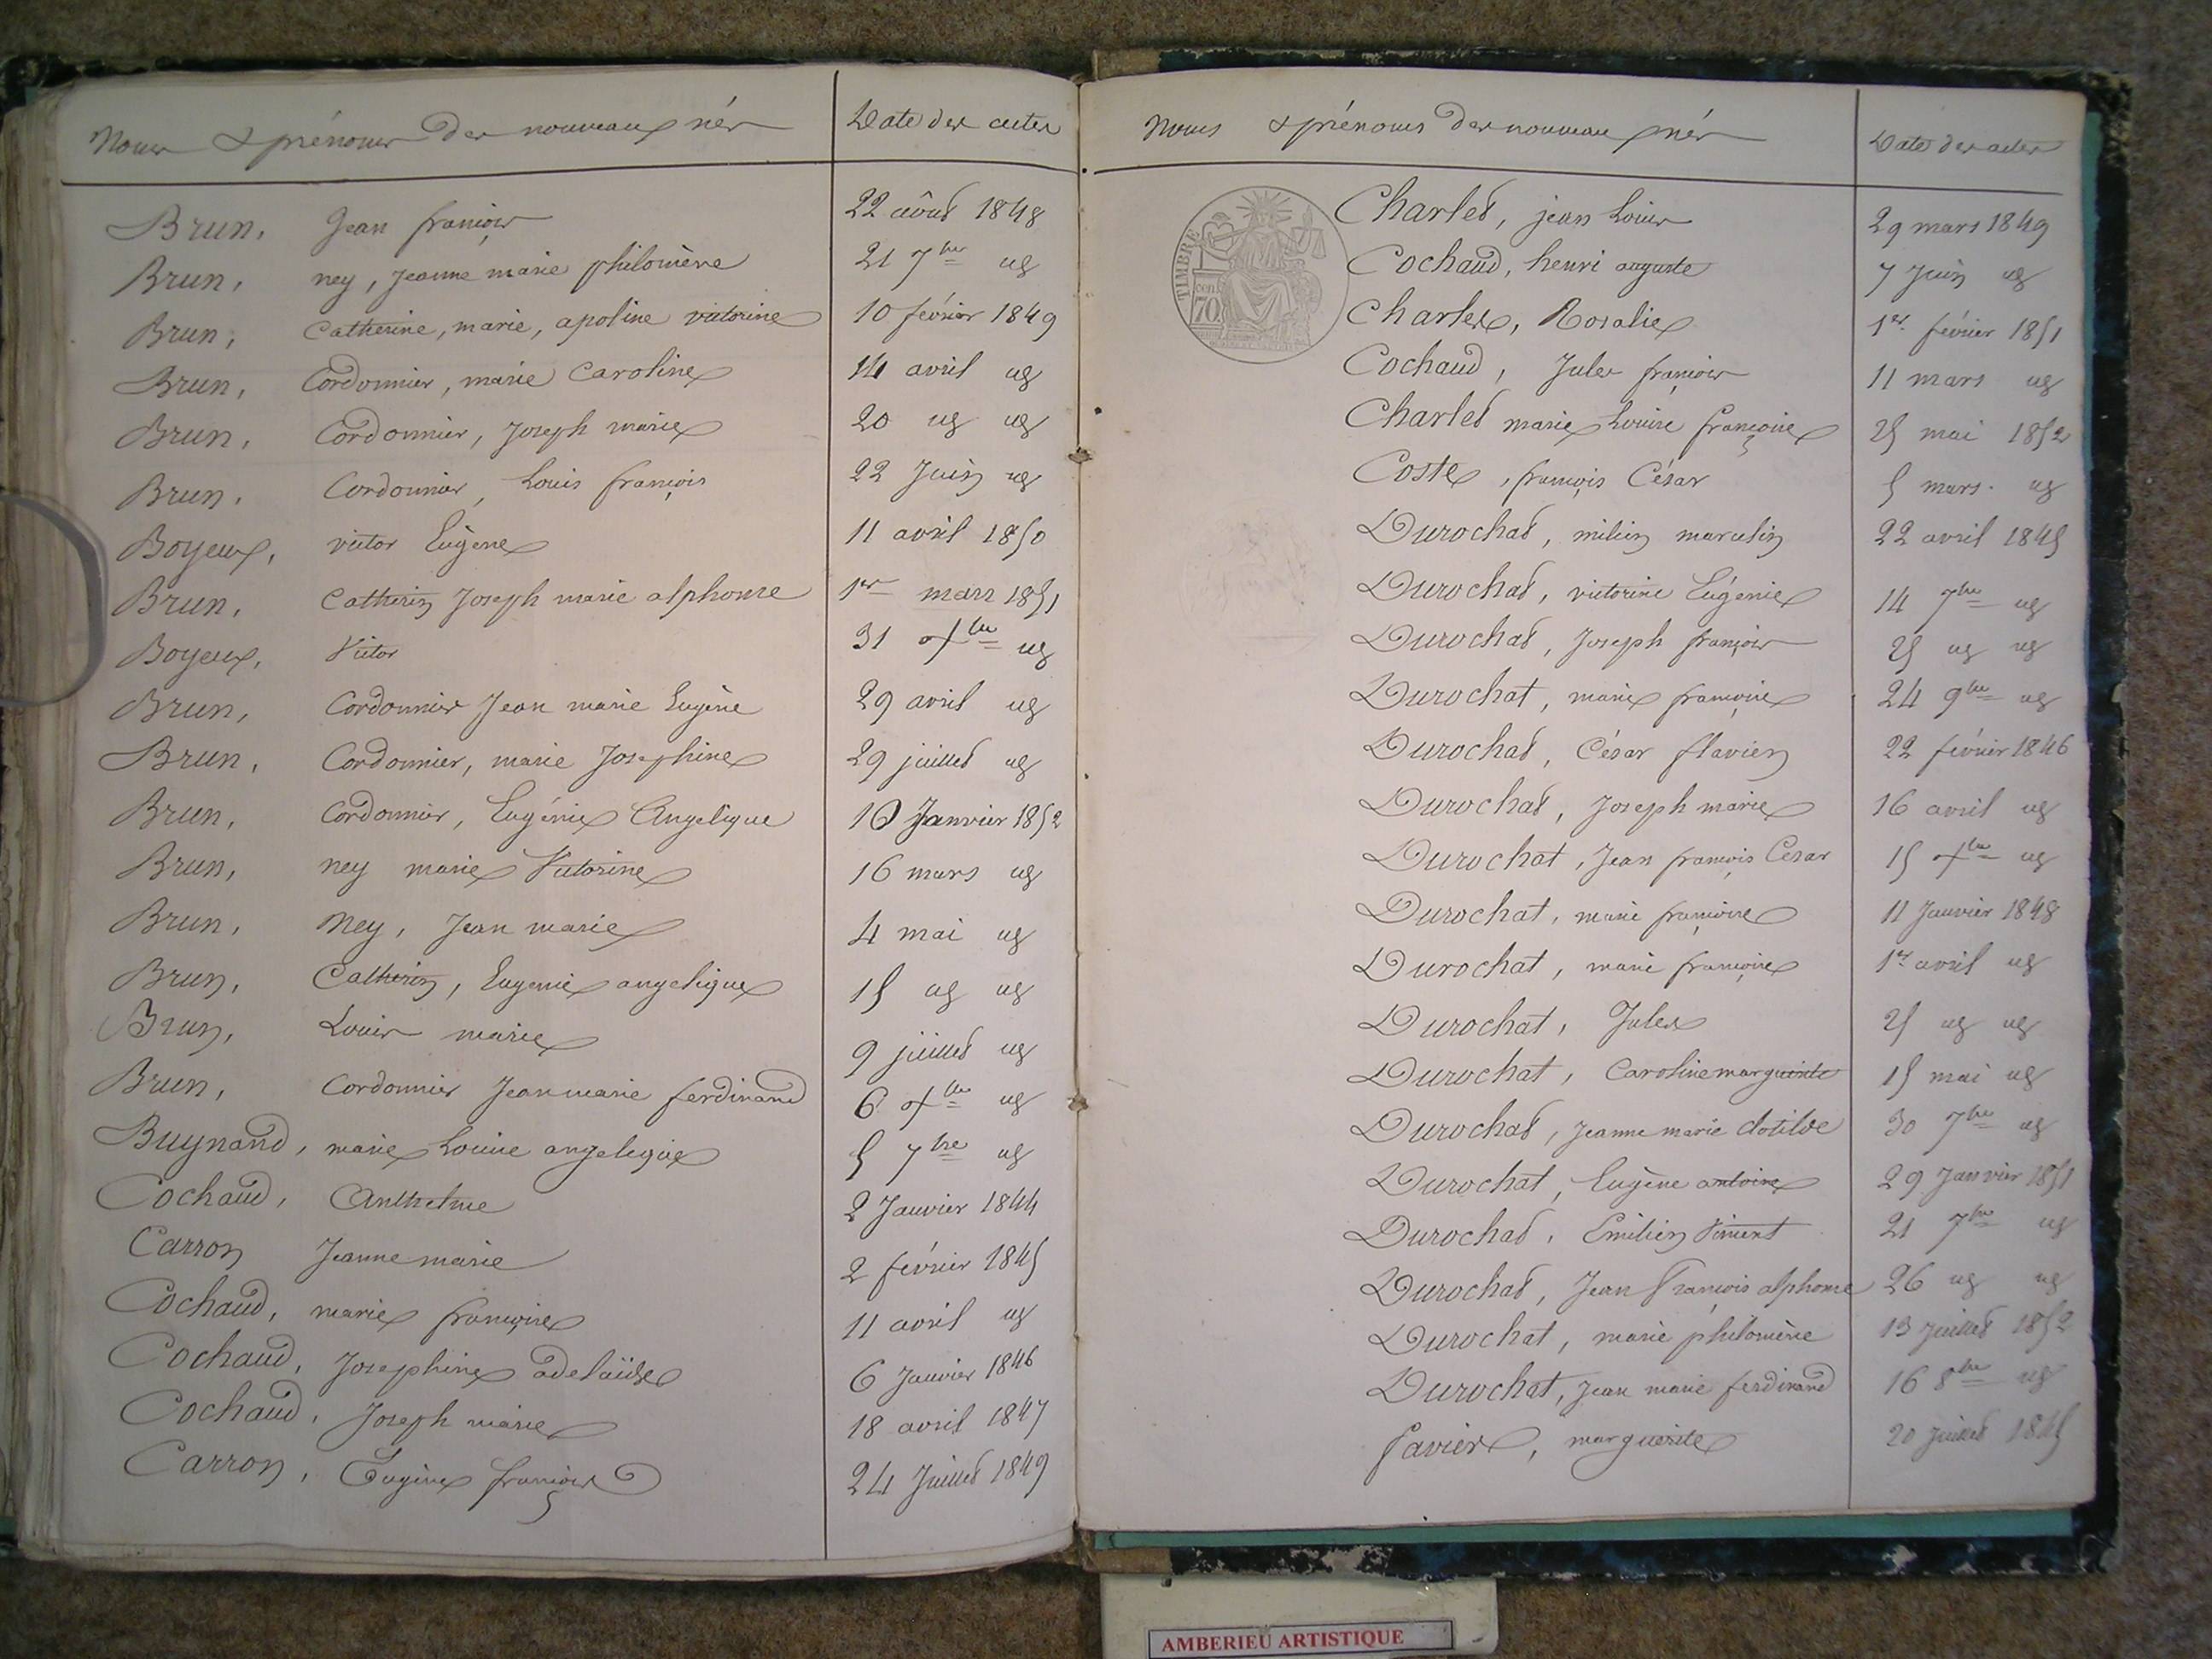 Noms & prénoms des nouveaux nés Date des actes
Brun, Jean françois 22 août 1848
Brun, ney, Jeanne marie philomène 21 7bre ug
Brun, Catherine, marie, apoline victorine 10 février 1849
Brun, Cordonnier, marie Caroline 14 avril ug
Brun, Cordonnier, Joseph marie 20 ug ug
Brun, Cordonnier, Louis françois 22 Juin ug
Boyeux, victor Eugène 11 avril 1850
Brun, Catherin Joseph marie alphonse 1er mars 1851
Boyeux, Victor 31 xbre ug
Brun, Cordonnier Jean marie Eugène 29 avril ug
Brun, Cordonnier, marie Josephine 29 juillet ug
Brun, Cordonnier, Eugénie Angelique 10 Janvier 1852
Brun, ney marie Victorine 16 mars ug
Brun, Ney, Jean marie 4 mai ug
Brun, Catherin, Eugenie angelique 15 ug ug
Brun, Louis marie 9 juillet ug
Brun, Cordonnier Jean marie ferdinand 6 xbre ug
Buynand, marie Louise angelique 5 7bre ug
Cochaud, Anthelme 2 Janvier 1844
Carron Jeanne marie 2 février 1845
Cochaud, marie françoise 11 avril ug
Cochaud, Josephine adelaïde 6 Janvier 1846
Cochaud, Joseph marie 18 avril 1847
Carron, Eugène françois 24 Juillet 1849
Noms & prénoms des nouveau nés Date des actes
TIMBRE
70 cen
Charles, jean Louis 29 mars 1849
Cochaud, henri auguste 7 Juin ug
Charles, Rosalie 1er février 1851
Cochaud, Jules françois 11 mars ug
Charles marie Louise françoise 25 mai 1852
Coste, françois César 5 mars ug
Durochat, milien marcelin 22 avril 1845
Durochat, victorine Eugénie 14 7bre ug
Durochat, Joseph françois 25 ug ug
Durochat, marie françoise 24 9bre ug
Durochat, César flavien 22 février 1846
Durochat, Joseph marie 16 avril ug
Durochat, Jean françois César 15 xbre ug
Durochat, marie françoise 11 Janvier 1848
Durochat, marie françoise 1er avril ug
Durochat, Jules 25 ug ug
Durochat, Caroline marguerite 15 mai ug
Durochat, Jeanne marie clotilde 30 7bre ug
Durochat, Eugène antoine 29 Janvier 1851
Durochat, Emilien Vincent 21 7bre ug
Durochat, Jean François alphonse 26 ug ug
Durochat, marie philomène 13 Juillet 1852
Durochat, Jean marie ferdinand 16 8bre ug
Favier, marguerite 20 Juillet 1845
AMBERIEU ARTISTIQUE